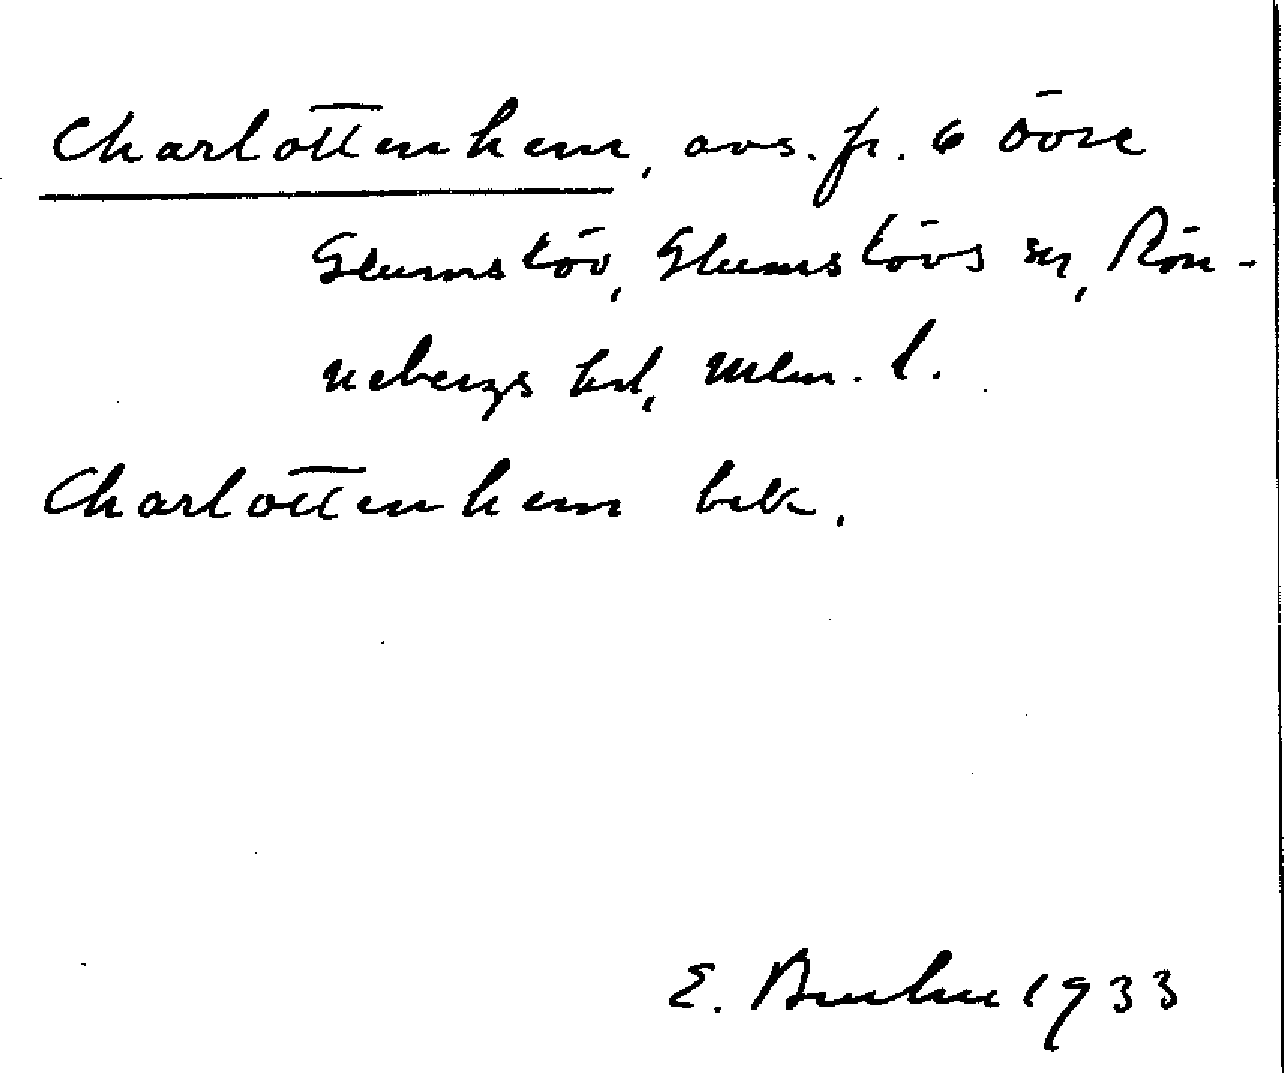 Charlottenhem, avs. fr. 6 Övre
Glumslöv, Glumslövs sn, Rön-
nebergs hd, Mlm. l.
Charlottenhem bek.
E. Bruhn 1933